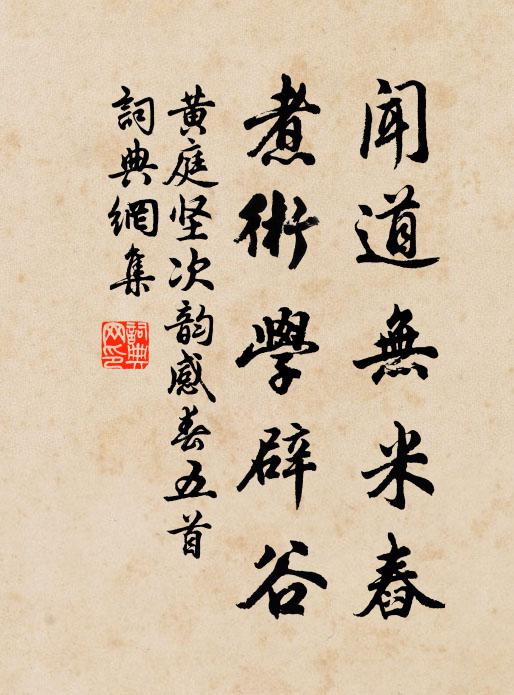 聞道無米舂
煮術學辟谷
黄庭坚次韵感春五首
詞典網集
詞典網印